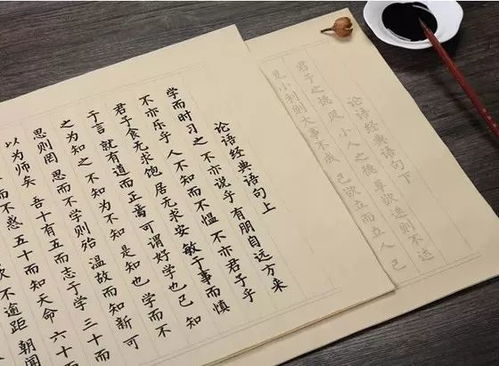 论语经典语句上
学而时习之 不亦说乎 有朋自远方来
不亦乐乎 人不知而不愠 不亦君子乎
君子食无求饱 居无求安 敏于事而慎
于言 就有道而正焉 可谓好学也已 知
之为知之 不知为不知 是知也 学而不
思则罔 思而不学则殆 温故而知新 可
以为师矣 吾十有五而志于学 三十而
而不惑 五十而知天命 六十
不逾距 朝闻
论语经典语句下
君子之德风 小人之德草 欲速则不达
见小利则大事不成 己欲立而立人 己